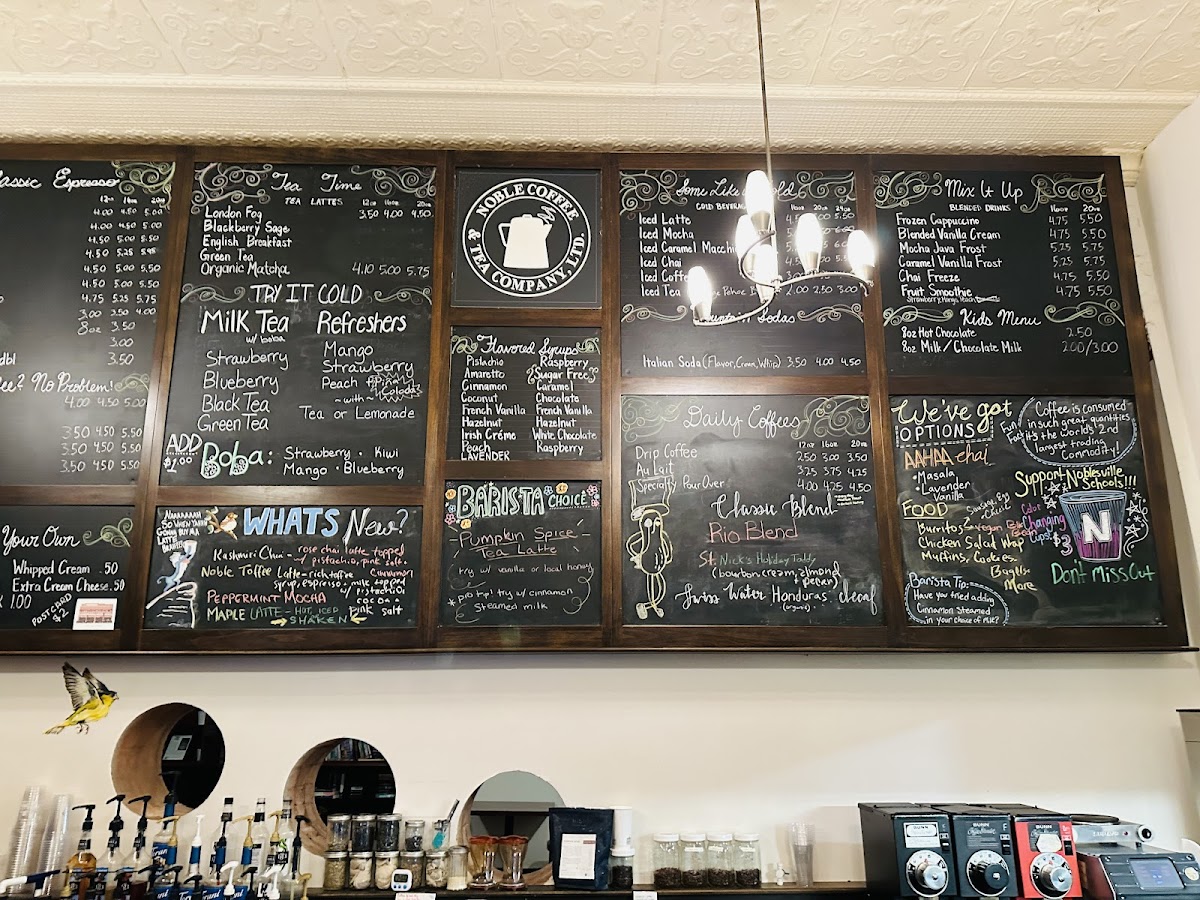 Classic Espresso
12oz 16oz 20oz
4.00 4.50 5.00
4.00 4.50 5.00
4.50 5.00 5.50
4.50 5.25 5.75
4.50 5.00 5.50
4.50 5.00 5.50
4.75 5.25 5.75
3.00 3.50 4.00
8oz 3.50
3.00
3.50
No Problem!
4.00 4.50 5.00
3.50 4.50 5.50
3.50 4.50 5.50
3.50 4.50 5.50
Your Own
Whipped Cream .50
Extra Cream Cheese .50
POSTCARD
$2
Tea Time
TEA LATTES 12oz 16oz 20oz
London Fog 3.50 4.00 4.50
Blackberry Sage
English Breakfast
Green Tea
Organic Matcha 4.10 5.00 5.75
TRY IT COLD
Milk Tea
w/ boba
Strawberry
Blueberry
Black Tea
Green Tea
Refreshers
Mango
Strawberry
Peach Piña Colada
~with~
Tea or Lemonade
ADD
$1.00
Boba: Strawberry • Kiwi
Mango • Blueberry
WHATS New?
Kashmiri Chai - rose chai latte topped
w/ pistachio, pink salt.
Noble Toffee Latte - rich toffee
syrup, espresso + milk topped
w/ pistachio
PEPPERMINT MOCHA
MAPLE LATTE - HOT, ICED
SHAKEN
Cinnamon
cocoa +
pink salt
NOBLE COFFEE
& TEA COMPANY, LTD.
Flavored Syrups
Pistachio
Amaretto
Cinnamon
Coconut
French Vanilla
Hazelnut
Irish Créme
Peach
LAVENDER
Raspberry
Sugar Free
Caramel
Chocolate
French Vanilla
Hazelnut
White Chocolate
Raspberry
BARISTA CHOICE
Pumpkin Spice
Tea Latte
try w/ vanilla or local honey
*pro tip! try w/ cinnamon
steamed milk
Some Like it Cold
COLD BEVERAGES 16oz 20oz 24oz
Iced Latte
Iced Mocha
Iced Caramel Macchiato
Iced Chai
Iced Coffee
Iced Tea 2.00 2.50 3.00
Mountain Sodas
Italian Soda (Flavor, Cream, Whip) 3.50 4.00 4.50
Daily Coffees
12oz 16oz 20oz
Drip Coffee 2.50 3.00 3.50
Au Lait 3.25 3.75 4.25
Specialty Pour Over 4.00 4.25 4.50
Classic Blend
Rio Blend
St. Nick's Holiday Toddy
(bourbon, cream, almond
+ pecan)
Swiss Water Honduras decaf
(organic)
Mix It Up
BLENDED DRINKS 16oz 20oz
Frozen Cappuccino 4.75 5.50
Blended Vanilla Cream 4.75 5.50
Mocha Java Frost 5.25 5.75
Caramel Vanilla Frost 5.25 5.75
Chai Freeze 4.75 5.50
Fruit Smoothie 4.75 5.50
Strawberry, Mango, Peach
Kids Menu
8oz Hot Chocolate 2.50
8oz Milk / Chocolate Milk 2.00/3.00
We've got
OPTIONS
AAHAA chai
• Masala
• Lavender
Vanilla
FOOD
Burritos
Chicken Salad Wrap
Muffins, Cookies
Bagels
More
Barista Tip:
Have you tried adding
Cinnamon Steamed
in your choice of milk?
Fun
Fact
Coffee is consumed
in such great quantities,
it's the World's 2nd
largest trading
Commodity!
Support Noblesville
Schools!!!
Color
Changing
Cups!
$3
N
Don't Miss Out
BUNN
BUNN
BUNN